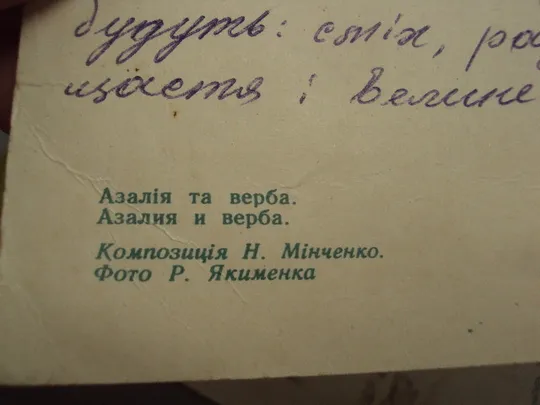 будуть: сміх, ра
щастя і велике
Азалія та верба.
Азалия и верба.
Композиція Н. Мінченко.
Фото Р. Якименка